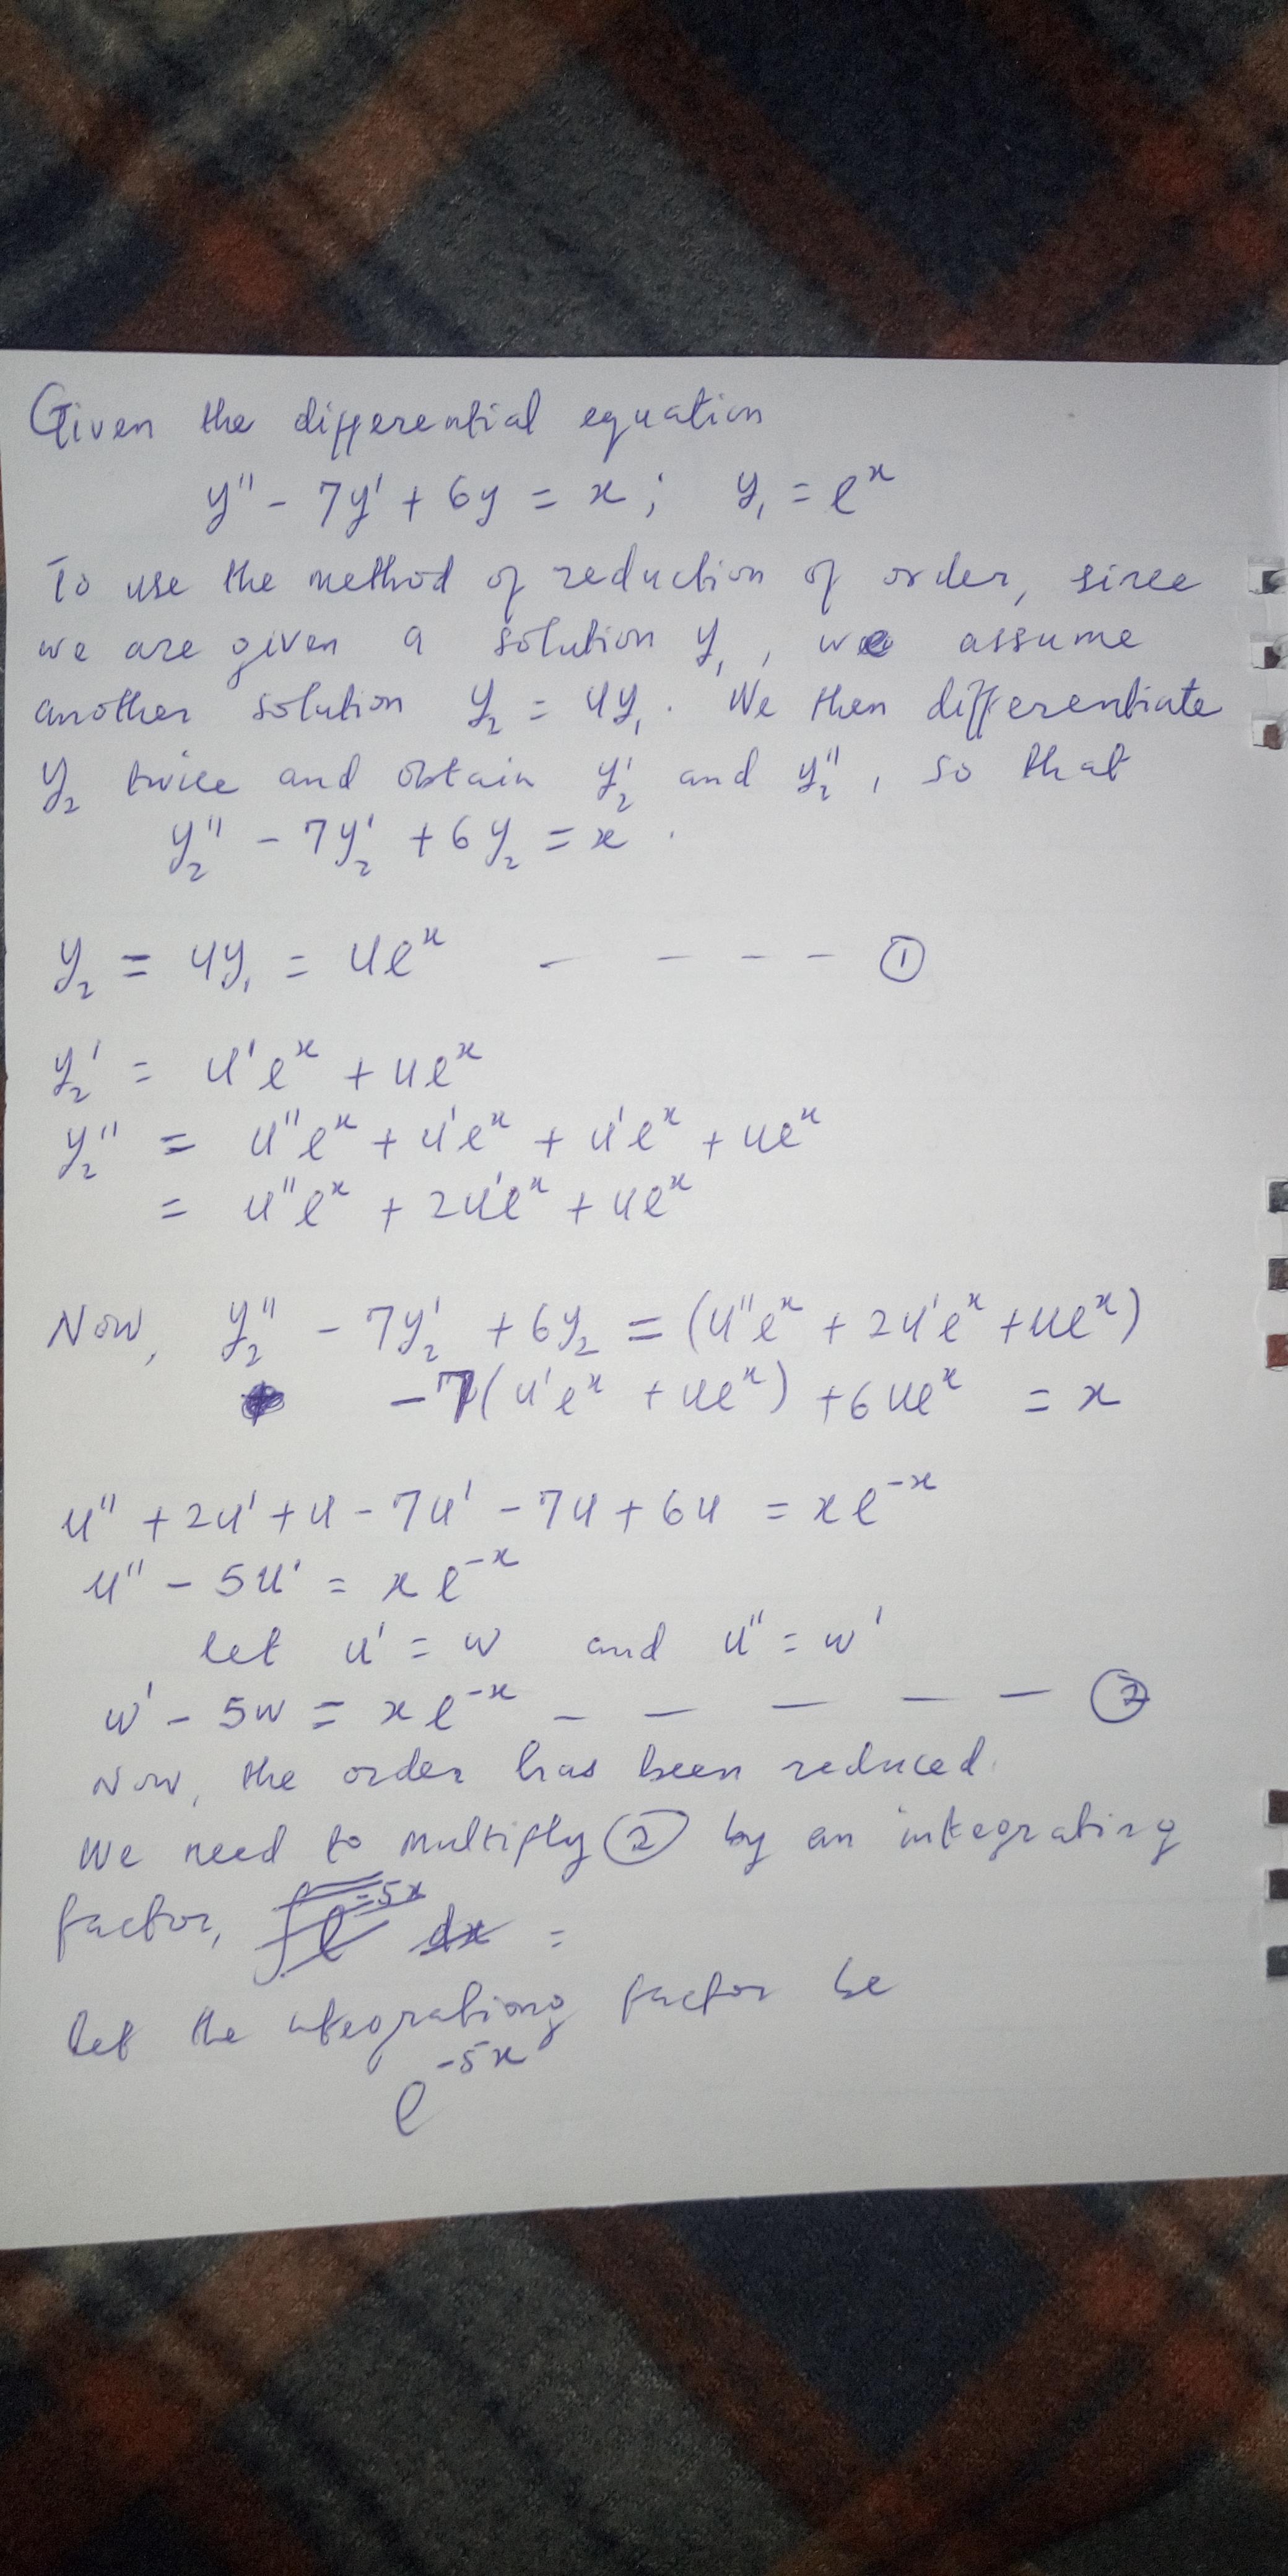 Given the differential equation
y'' - 7y' + 6y = x ; y₁ = eˣ
To use the method of reduction of order, since
we are given a solution y₁ , we assume
another solution y₂ = uy₁ . We then differentiate
y₂ twice and obtain y₂' and y₂'' , so that
y₂'' - 7y₂' + 6y₂ = x .
y₂ = uy₁ = ueˣ - - - - ①
y₂' = u'eˣ + ueˣ
y₂'' = u''eˣ + u'eˣ + u'eˣ + ueˣ
= u''eˣ + 2u'eˣ + ueˣ
Now, y₂'' - 7y₂' + 6y₂ = (u''eˣ + 2u'eˣ + ueˣ)
-7(u'eˣ + ueˣ) + 6ueˣ = x
u'' + 2u' + u - 7u' - 7u + 6u = xe⁻ˣ
u'' - 5u' = xe⁻ˣ
let u' = w and u'' = w'
w' - 5w = xe⁻ˣ - - - - - ②
Now, the order has been reduced.
We need to multiply ② by an integrating
factor, ∫e⁻⁵ˣ dx =
let the integrationg factor be
e⁻⁵ˣ